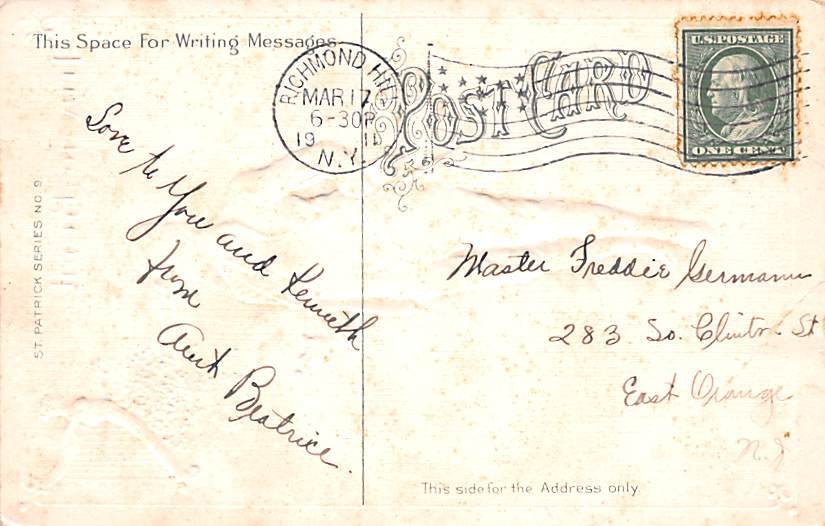 This Space For Writing Messages
POST CARD
RICHMOND HILL
MAR 17
6-30P
19
N.Y.
U.S.POSTAGE
ONE CENT
Love to You and Kenneth
from
Aunt Beatrice.
Master Freddie Germann
283 So. Clinton St
East Orange
N.J
ST. PATRICK SERIES NO 9
This side for the Address only.